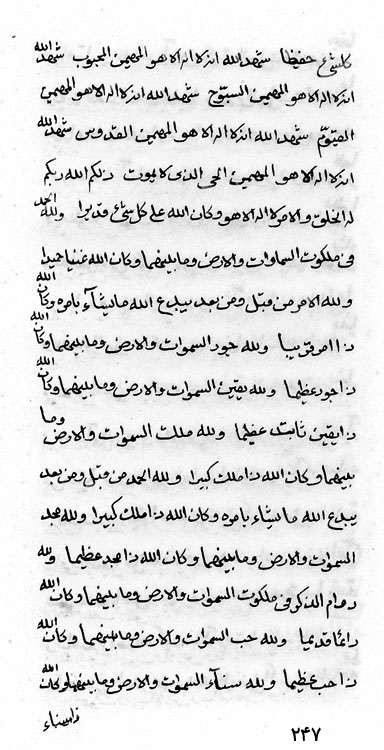 كلشيء حفيظا شهد الله انه لا اله الا هو المهيمن المحبوب شهد الله
انه لا اله الا هو المهيمن السبوح شهد الله انه لا اله الا هو المهيمن
القيوم شهد الله انه لا اله الا هو المهيمن القدوس شهد الله
انه لا اله الا هو المهيمن الحي الذي لا يموت ذلكم الله ربكم
له الخلق والامر لا اله الا هو وكان الله على كل شيء قديرا ولله الحمد
في ملكوت السماوات والارض وما بينهما وكان الله غنيا حميدا
ولله الامر من قبل ومن بعد يبدع الله ما يشاء بامره وكان الله
ذا امر قريبا ولله جود السموات والارض وما بينهما وكان الله
ذا جود عظيما ولله يقين السموات والارض وما بينهما وكان الله
ذا يقين ثابت عظيما ولله ملك السموات والارض وما
بينهما وكان الله ذا ملك كبيرا ولله الحمد من قبل ومن بعد
يبدع الله ما يشاء بامره وكان الله ذا ملك كبيرا ولله مجد
السموات والارض وما بينهما وكان الله ذا مجد عظيما ولله
دوام الذكر في ملكوت السموات والارض وما بينهما وكان الله
دائما قديما ولله حب السموات والارض وما بينهما وكان الله
ذا حب عظيما ولله سناء السموات والارض وما بينهما وكان الله
ذا سناء
۲۴۷